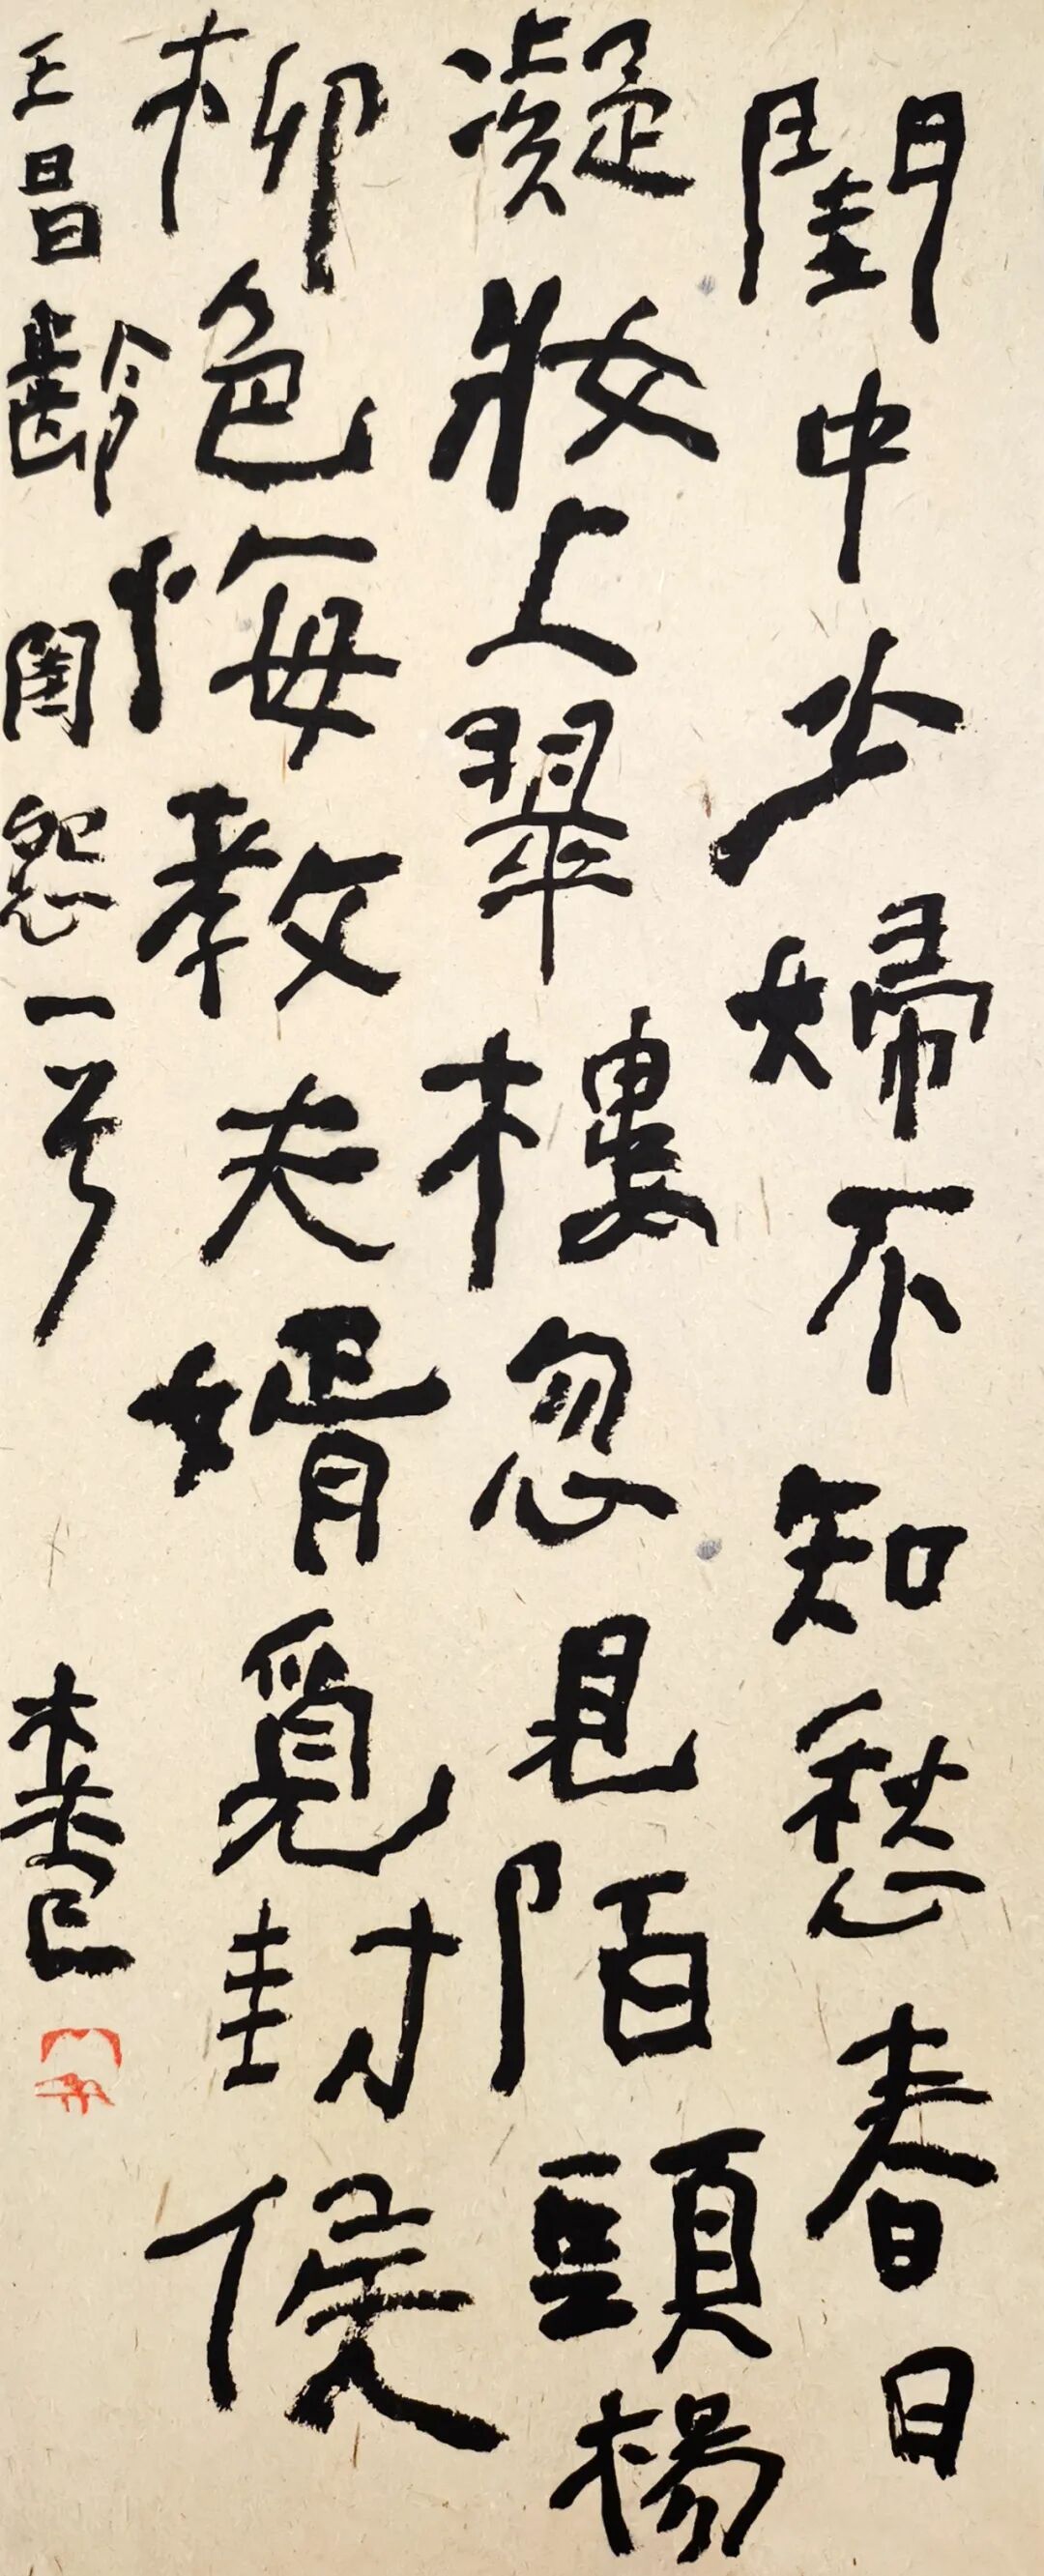 閨中少婦不知愁春日
凝妝上翠樓忽見陌頭楊
柳色悔教夫婿覓封侯
王昌齡閨怨一首